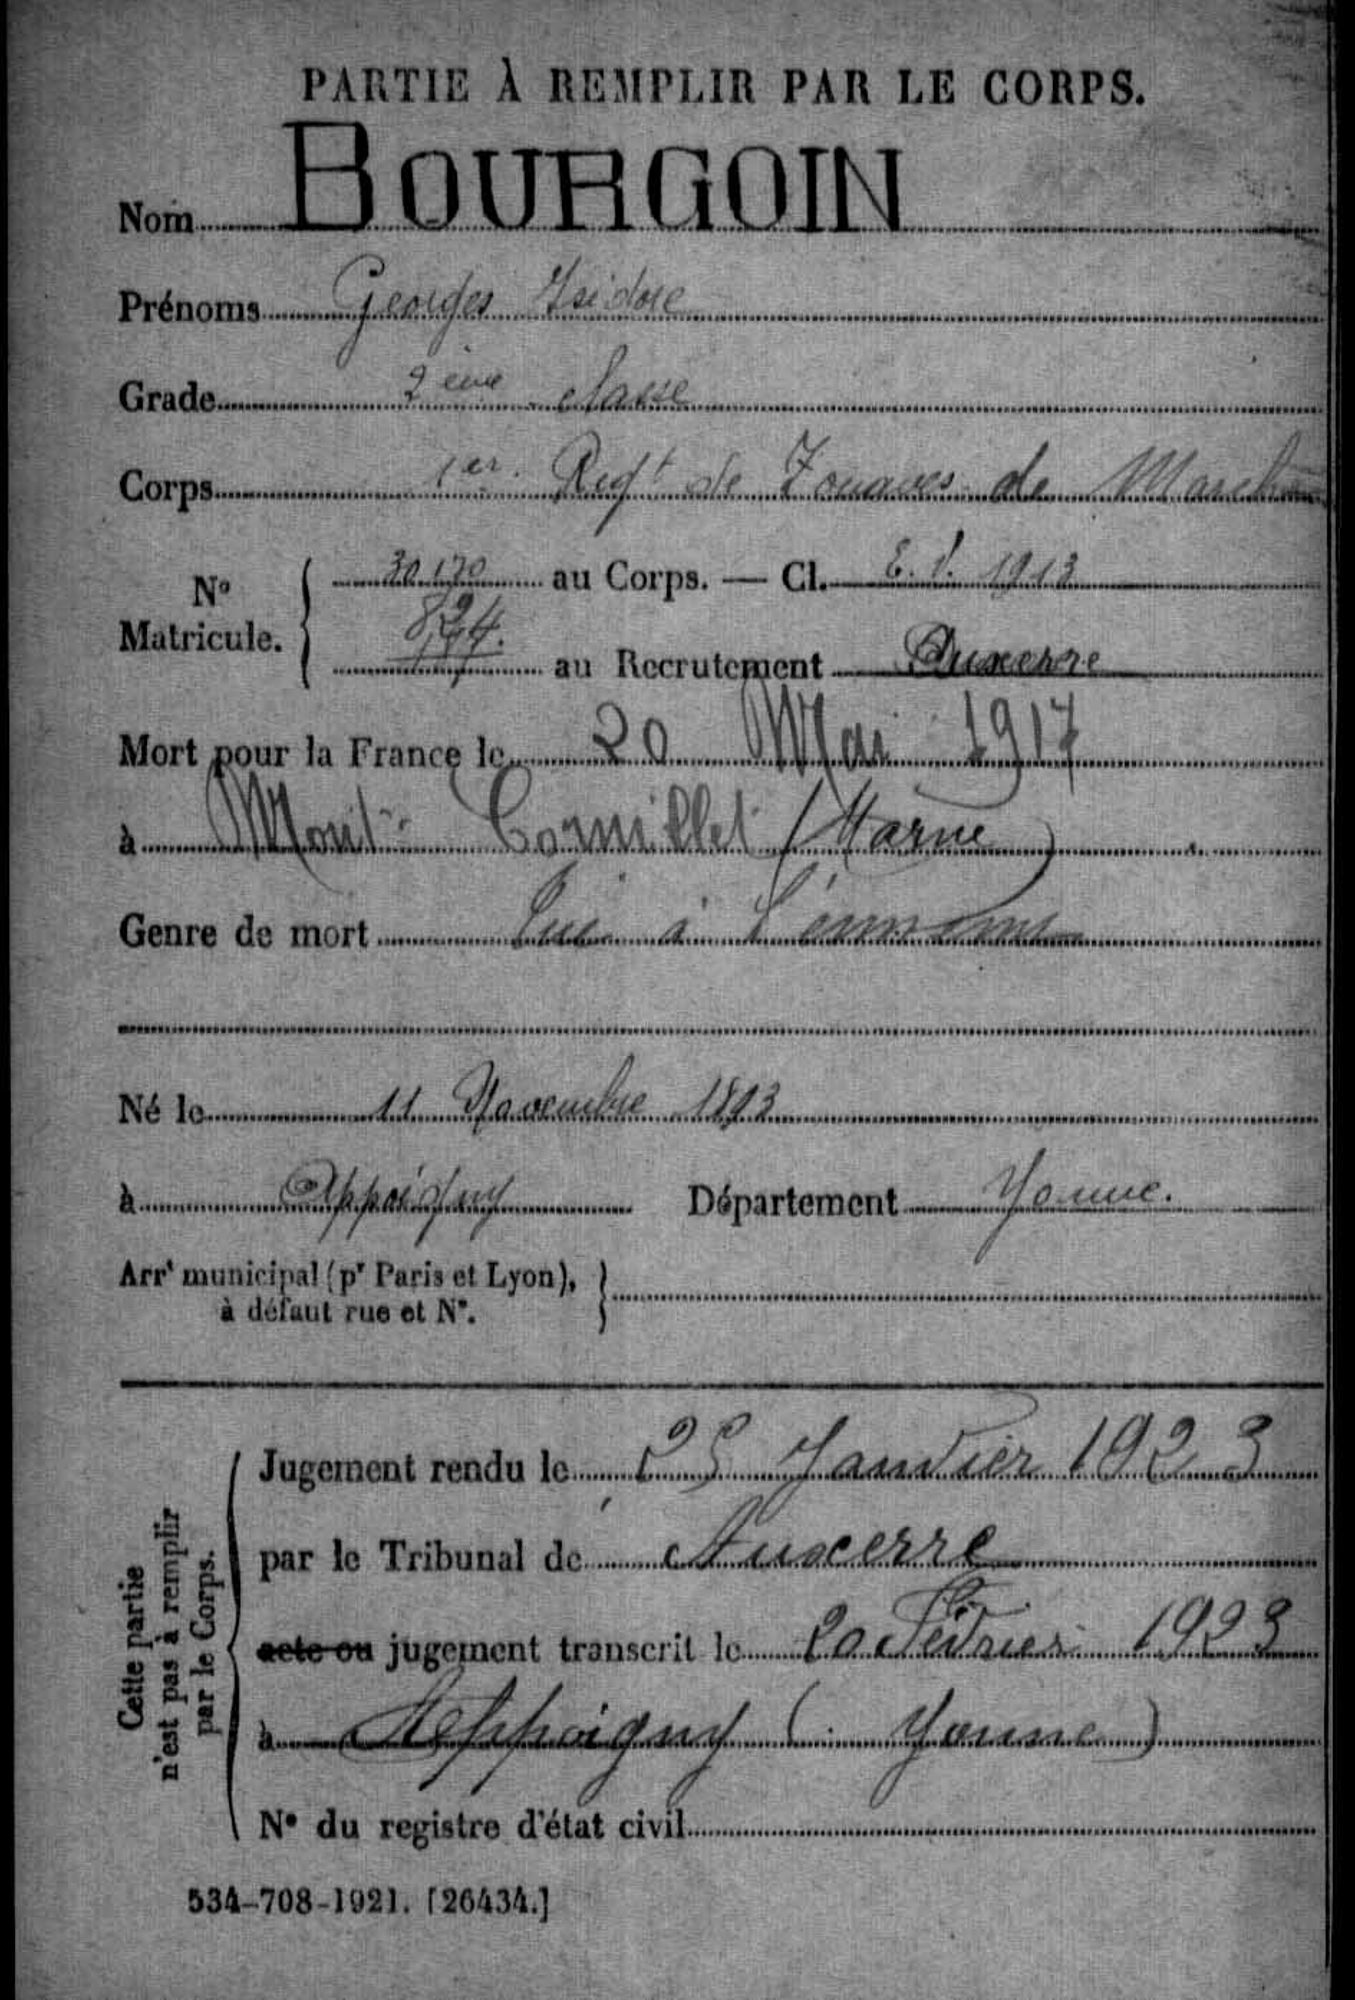 PARTIE À REMPLIR PAR LE CORPS.
Nom BOURGOIN
Prénoms Georges Isidore
Grade 2ème classe
Corps 1er. Regt de Zouaves de Marche
No Matricule.
30.170 au Corps. — Cl. E. V. 1913
au Recrutement Auxerre
Mort pour la France le 20 Mai 1917
à Mont- Cornillet (Marne)
Genre de mort Tué à l'ennemi
Né le 11 Novembre 1893
à Appoigny Département Yonne.
Arrt municipal (pr Paris et Lyon),
à défaut rue et No.
Cette partie
n'est pas à remplir
par le Corps.
Jugement rendu le 25 Janvier 1923
par le Tribunal de Auxerre
acte ou jugement transcrit le 20 Février 1923
à Appoigny (Yonne)
No du registre d'état civil
534-708-1921. [26434.]